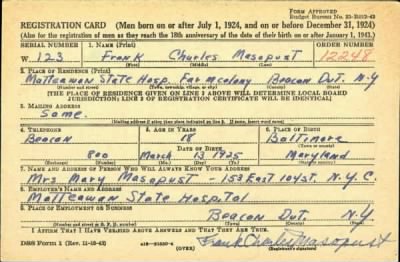 FORM APPROVED
Budget Bureau No. 33-R012-43
REGISTRATION CARD (Men born on or after July 1, 1924, and on or before December 31, 1924)
(Also for the registration of men as they reach the 18th anniversary of the date of their birth on or after January 1, 1943.)
SERIAL NUMBER 1. NAME (Print) ORDER NUMBER
W 123 Frank Charles Masopust 12248
(First) (Middle) (Last)
2. PLACE OF RESIDENCE (Print)
Matteawan State Hosp. Farm colony Beacon Dut. N.Y
(Number and street) (Town, township, village, or city) (County) (State)
[THE PLACE OF RESIDENCE GIVEN ON LINE 2 ABOVE WILL DETERMINE LOCAL BOARD
JURISDICTION; LINE 2 OF REGISTRATION CERTIFICATE WILL BE IDENTICAL]
3. MAILING ADDRESS
Same.
(Mailing address if other than place indicated on line 2. If same, insert word same)
4. TELEPHONE 5. AGE IN YEARS 6. PLACE OF BIRTH
Beacon 18 Baltimore
DATE OF BIRTH (Town or county)
800 March 13 1925 Maryland
(Exchange) (Number) (Mo.) (Day) (Yr.) (State or country)
7. NAME AND ADDRESS OF PERSON WHO WILL ALWAYS KNOW YOUR ADDRESS
Mrs Mary Masopust - 153 East 104 st. N.Y.C.
8. EMPLOYER'S NAME AND ADDRESS
Matteawan State Hospital
9. PLACE OF EMPLOYMENT OR BUSINESS
Beacon Dut. N.Y
(Number and street or R. F. D. number) (Town) (County) (State)
I AFFIRM THAT I HAVE VERIFIED ABOVE ANSWERS AND THAT THEY ARE TRUE.
DSS Form 1 (Rev. 11-16-42) (OVER)
Frank Charles Masopust
(Registrant's signature)